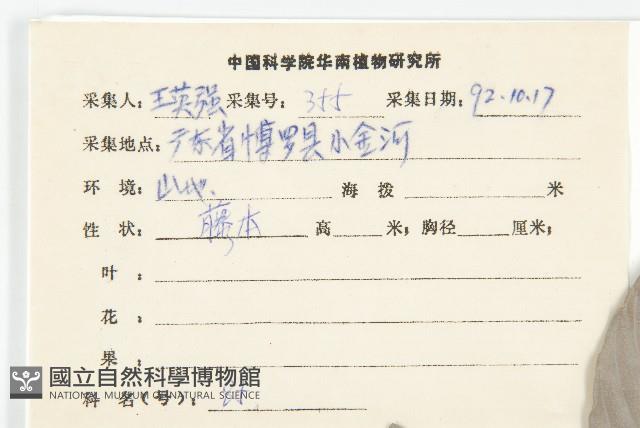 中国科学院华南植物研究所
采集人: 王英强 采集号: 355 采集日期: 92.10.17
采集地点: 广东省博罗县小金河
环 境: 山地. 海 拨 米
性 状: 藤本 高 米; 胸径 厘米;
叶 :
花 :
果 :
國立自然科學博物館
NATIONAL MUSEUM OF NATURAL SCIENCE
科 名(号):